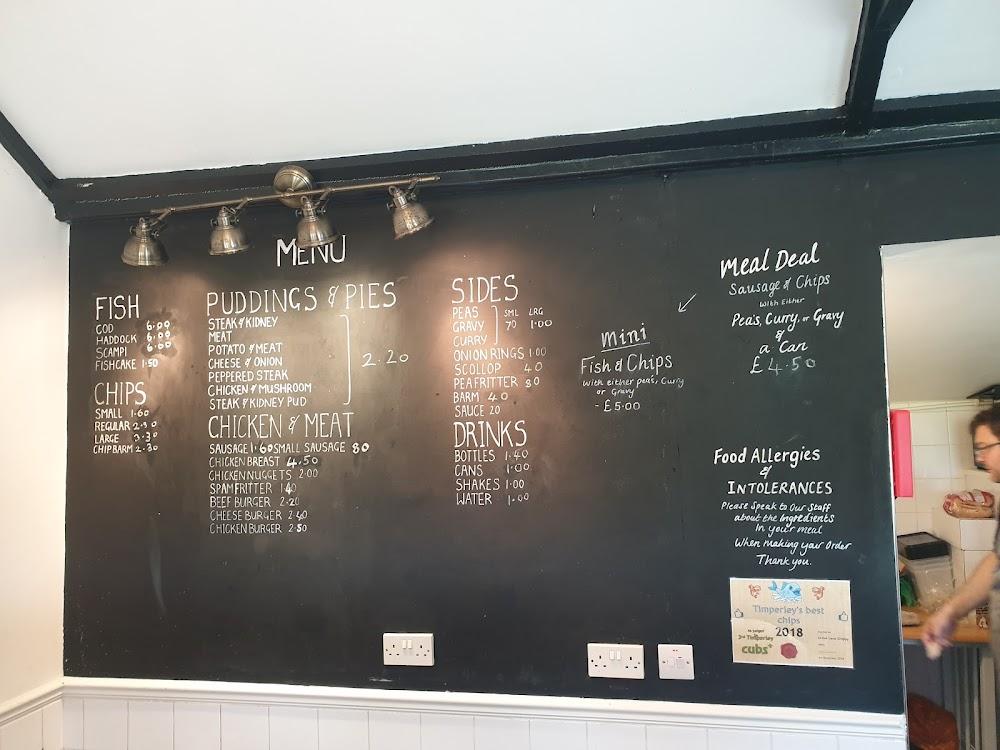 MENU
FISH
COD 6.00
HADDOCK 6.00
SCAMPI 6.00
FISHCAKE 1.50
CHIPS
SMALL 1.60
REGULAR 2.30
LARGE 3.30
CHIP BARM 2.30
PUDDINGS & PIES
STEAK & KIDNEY
MEAT
POTATO & MEAT
CHEESE & ONION
PEPPERED STEAK
CHICKEN & MUSHROOM
STEAK & KIDNEY PUD
2.20
CHICKEN & MEAT
SAUSAGE 1.60 SMALL SAUSAGE 80
CHICKEN BREAST 4.50
CHICKEN NUGGETS 2.00
SPAM FRITTER 1.40
BEEF BURGER 2.20
CHEESE BURGER 2.40
CHICKEN BURGER 2.50
SIDES
PEAS SML LRG
GRAVY 70 1.00
CURRY
ONION RINGS 1.00
SCOLLOP 40
PEA FRITTER 80
BARM 40
SAUCE 20
DRINKS
BOTTLES 1.40
CANS 1.00
SHAKES 1.00
WATER 1.00
Mini
Fish & Chips
With either peas, Curry
or Gravy
- £5.00
Meal Deal
Sausage & Chips
With Either
Peas, Curry, or Gravy
&
a Can
£4.50
Food Allergies
&
INTOLERANCES
Please Speak to Our Staff
about the Ingredients
In your meal
When making your Order
Thank you.
Timperley's best
chips
2018
3rd Timperley
cubs